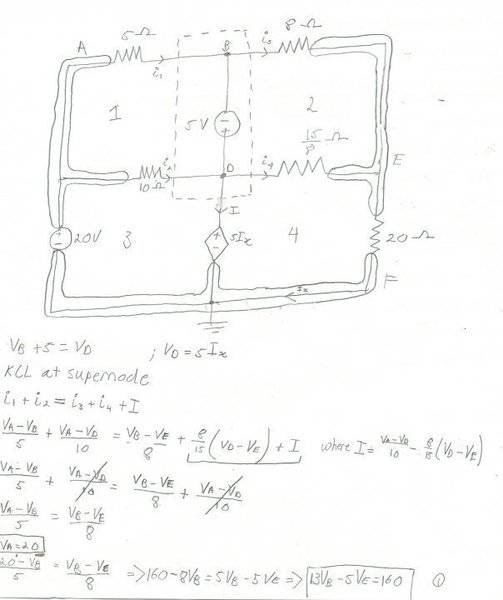 5Ω
8Ω
A
B
i₁
i₃
1
2
5V
15/8 Ω
E
i₂
10Ω
D
i₄
I
20V
3
5Iₓ
4
20Ω
F
Iₓ
V_B + 5 = V_D ; V_D = 5Iₓ
KCL at supernode
i₁ + i₂ = i₃ + i₄ + I
(V_A-V_B)/5 + (V_A-V_D)/10 = (V_B-V_E)/8 + 8/15 (V_D-V_E) + I where I = (V_A-V_D)/10 - 8/15 (V_D-V_E)
(V_A-V_B)/5 + (V_A-V_D)/10 = (V_B-V_E)/8 + (V_A-V_D)/10
(V_A-V_B)/5 = (V_B-V_E)/8
V_A=20
(20-V_B)/5 = (V_B-V_E)/8 => 160-8V_B = 5V_B - 5V_E => 13V_B - 5V_E = 160 ①